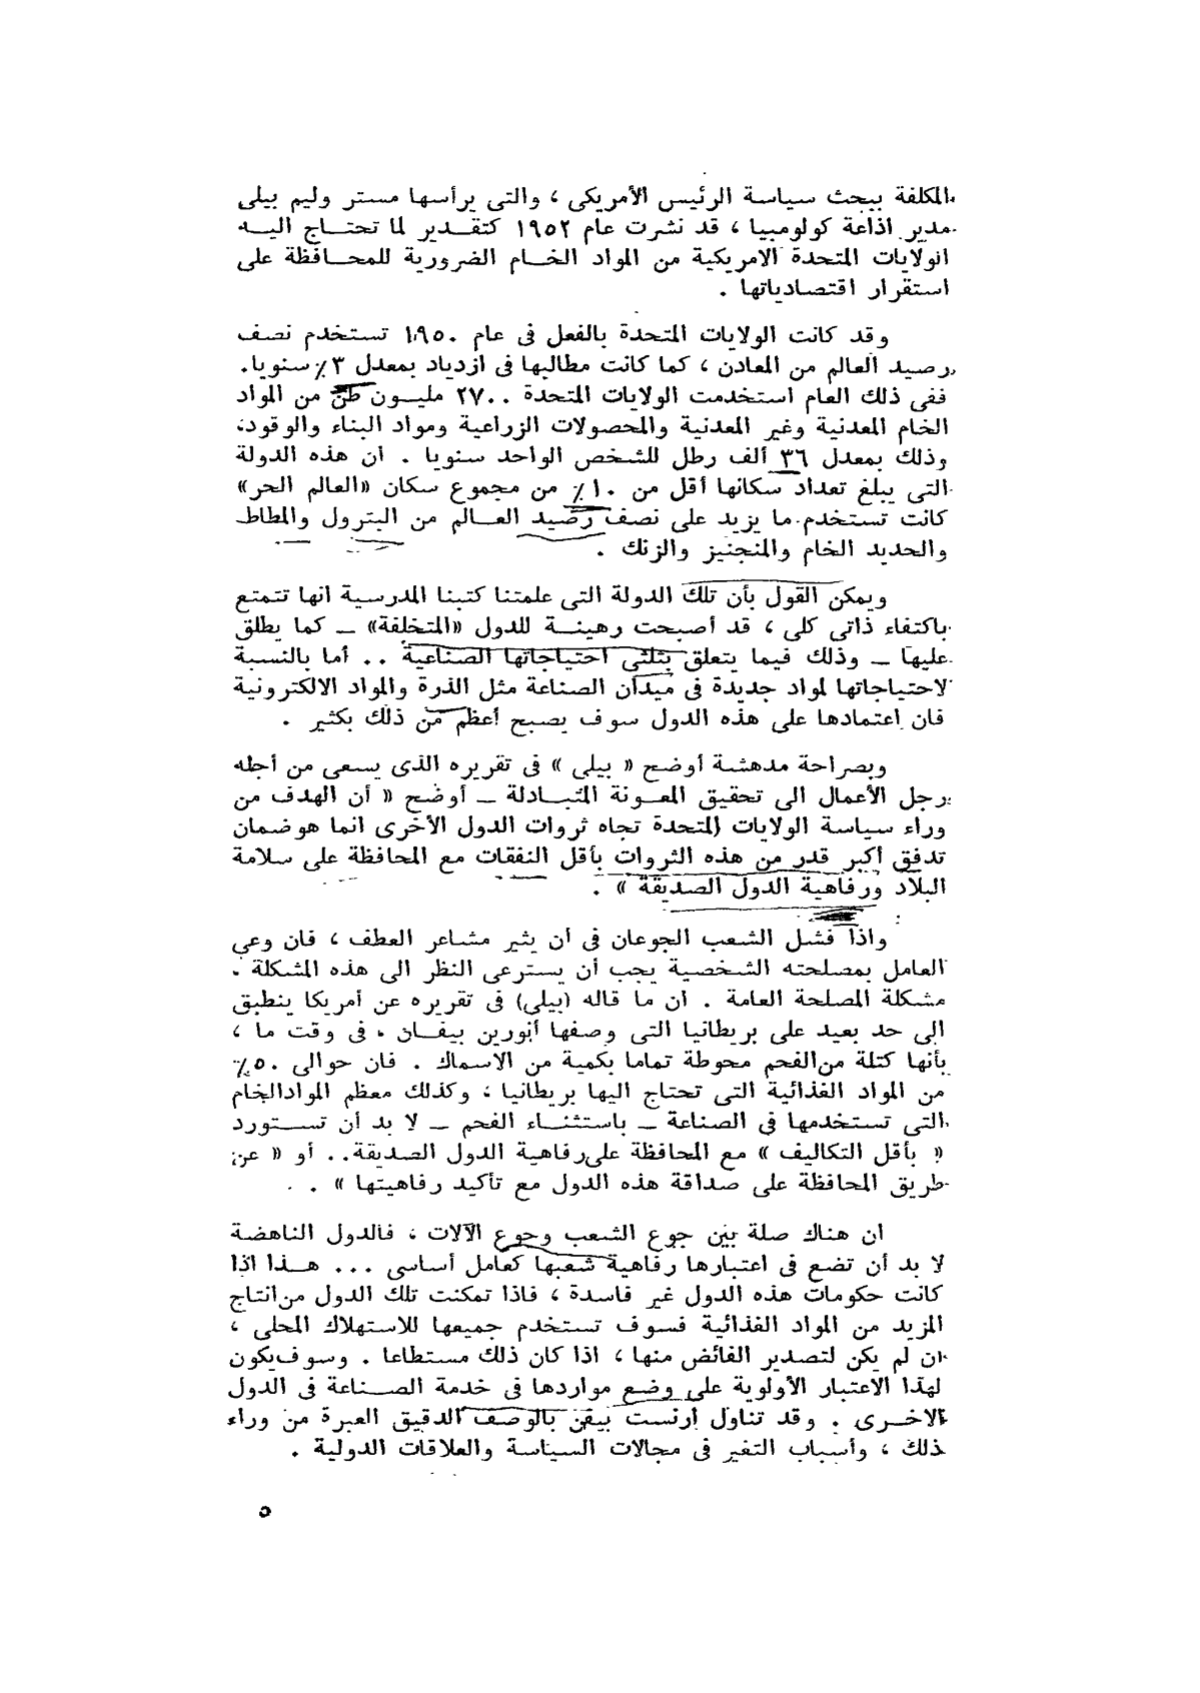 المكلفة ببحث سياسة الرئيس الأمريكى ، والتى يرأسها مستر وليم بيلى
مدير اذاعة كولومبيا ، قد نشرت عام ١٩٥٢ كتقـدير لما تحتـاج اليـه
الولايات المتحدة الامريكية من المواد الخـام الضرورية للمحـافظة على
استقرار اقتصادياتها .
وقد كانت الولايات المتحدة بالفعل فى عام ١٩٥٠ تستخدم نصف
رصيد العالم من المعادن ، كما كانت مطالبها فى ازدياد بمعدل ٣٪ سنويا.
ففى ذلك العام استخدمت الولايات المتحدة ٢٧٠٠ مليـون طن من المواد
الخام المعدنية وغير المعدنية والمحصولات الزراعية ومواد البناء والوقود،
وذلك بمعدل ٣٦ ألف رطل للشخص الواحد سنويا . ان هذه الدولة
التى يبلغ تعداد سكانها أقل من ١٠٪ من مجموع سكان «العالم الحر»
كانت تستخدم ما يزيد على نصف رصيد العـالم من البترول والمطاط
والحديد الخام والمنجنيز والزنك .
ويمكن القول بأن تلك الدولة التى علمتنا كتبنا المدرسية انها تتمتع
باكتفاء ذاتى كلى ، قد أصبحت رهينـة للدول «المتخلفة» ــ كما يطلق
عليها ــ وذلك فيما يتعلق بثلثى احتياجاتها الصناعية .. أما بالنسبة
لاحتياجاتها لمواد جديدة فى ميدان الصناعة مثل الذرة والمواد الالكترونية
فان اعتمادها على هذه الدول سوف يصبح أعظم من ذلك بكثير .
وبصراحة مدهشة أوضح « بيلى » فى تقريره الذى يسعى من أجله
رجل الأعمال الى تحقيق المعـونة المتبـادلة ــ أوضح « أن الهدف من
وراء سياسة الولايات المتحدة تجاه ثروات الدول الأخرى انما هو ضمان
تدفق أكبر قدر من هذه الثروات بأقل النفقات مع المحافظة على سلامة
البلاد ورفاهية الدول الصديقة » .
واذا فشل الشعب الجوعان فى أن يثير مشاعر العطف ، فان وعى
العامل بمصلحته الشخصية يجب أن يسترعى النظر الى هذه المشكلة .
مشكلة المصلحة العامة . ان ما قاله (بيلى) فى تقريره عن أمريكا ينطبق
الى حد بعيد على بريطانيا التى وصفها أنورين بيفـان ، فى وقت ما ،
بأنها كتلة من الفحم محوطة تماما بكمية من الاسماك . فان حوالى ٥٠٪
من المواد الغذائية التى تحتاج اليها بريطانيا ، وكذلك معظم المواد الخام
التى تستخدمها فى الصناعة ــ باستثنـاء الفحم ــ لا بد أن تسـتورد
« بأقل التكاليف » مع المحافظة على رفاهية الدول الصديقة.. أو « عن
طريق المحافظة على صداقة هذه الدول مع تأكيد رفاهيتها » .
ان هناك صلة بين جوع الشعب وجوع الآلات ، فالدول الناهضة
لا بد أن تضع فى اعتبارها رفاهية شعبها كعامل أساسى ... هـذا اذا
كانت حكومات هذه الدول غير فاسدة ، فاذا تمكنت تلك الدول من انتاج
المزيد من المواد الغذائية فسوف تستخدم جميعها للاستهلاك المحلى ،
ان لم يكن لتصدير الفائض منها ، اذا كان ذلك مستطاعا . وسوف يكون
لهذا الاعتبار الأولوية على وضع مواردها فى خدمة الصـناعة فى الدول
الاخـرى . وقد تناول أرنست بيفن بالوصف الدقيق العبرة من وراء
ذلك ، وأسباب التغير فى مجالات السياسة والعلاقات الدولية .
٥